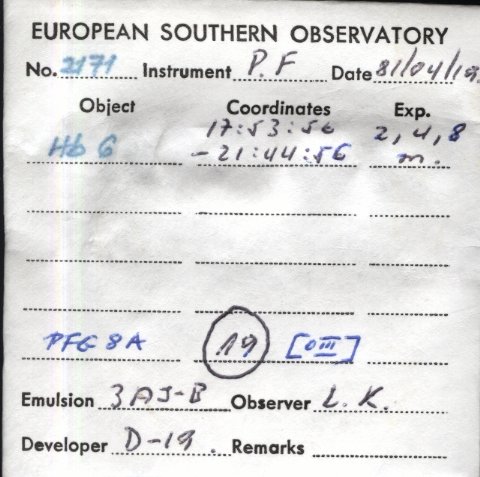 EUROPEAN SOUTHERN OBSERVATORY
No. 2171 Instrument P.F Date 81/04/19
Object Coordinates Exp.
Hb 6 17:53:56 2, 4, 8
-21:44:56 m.
PFG 8A 19 [OIII]
Emulsion 3AJ-B Observer L.K.
Developer D-19. Remarks